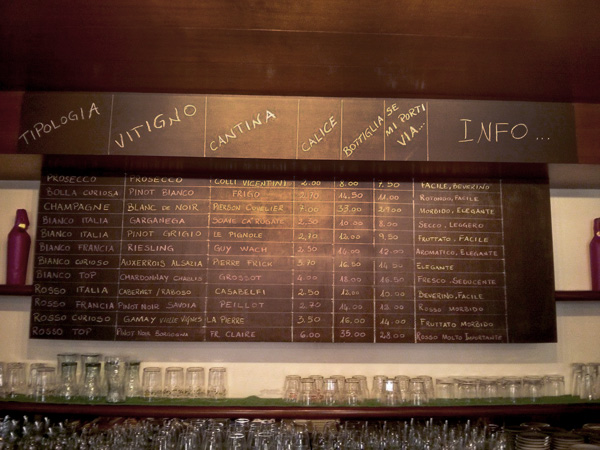 TIPOLOGIA VITIGNO CANTINA CALICE BOTTIGLIA SE MI PORTI VIA... INFO...
PROSECCO PROSECCO COLLI VICENTINI 2.00 8.00 7.50 FACILE, BEVERINO
BOLLA CURIOSA PINOT BIANCO FRIGO 2,70 14.50 ROTONDO, FACILE
CHAMPAGNE BLANC DE NOIR CUVELIER 7.00 MORBIDO, ELEGANTE
BIANCO ITALIA GARGANEGA SOAVE CA' RUGATE 2,30 10.00 8.00 SECCO, LEGGERO
BIANCO ITALIA PINOT GRIGIO LE PIGNOLE 2,70 9.50 FRUTTATO, FACILE
BIANCO FRANCIA RIESLING GUY WACH 12.00 AROMATICO, ELEGANTE
BIANCO CURIOSO AUXERROIS ALSAZIA PIERRE FRICK 3,70 16.50 14.50 ELEGANTE
BIANCO TOP CHARDONNAY CHABLIS GROSSOT 4.00 18.00 16.00 FRESCO, SEDUCENTE
ROSSO ITALIA CABERNET / RABOSO CASABELFI 2.50 12.00 10.00 BEVERINO, FACILE
ROSSO FRANCIA PINOT NOIR SAVOIA PEILLOT 2.70 14.00 12.00 ROSSO MORBIDO
ROSSO CURIOSO GAMAY VIEILLE VIGNES LA PIERRE 3.50 16.00 14.00 FRUTTATO MORBIDO
ROSSO TOP PINOT NOIR BORGOGNA FR. CLAIRE 6.00 35.00 28.00 ROSSO MOLTO IMPORTANTE